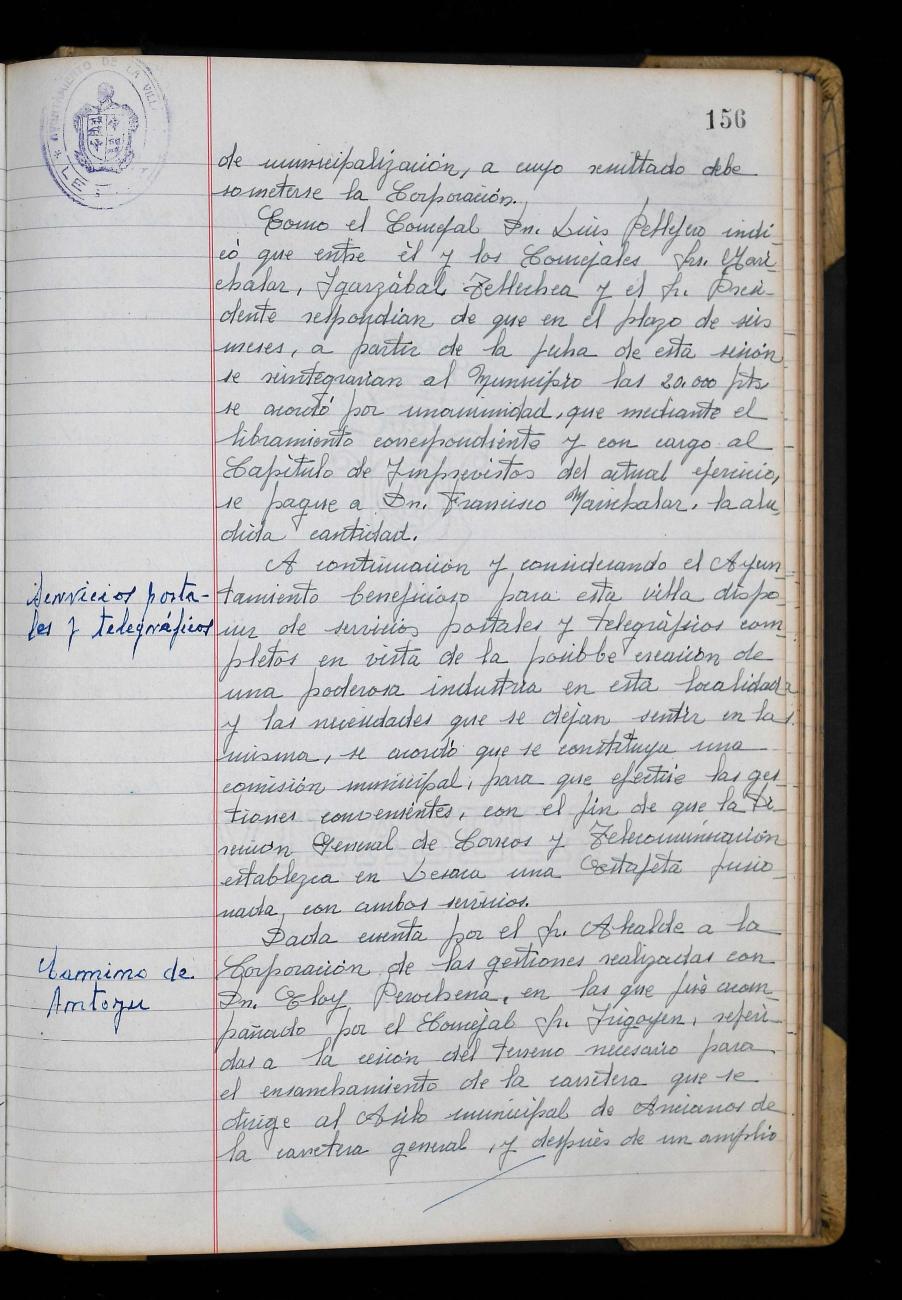 156
AYUNTAMIENTO DE LA VILLA
LE
de municipalización, a cuyo resultado debe
someterse la Corporación.
Como el Concejal Dn. Luis Pellejero indi-
có que entre él y los Concejales Sr. Mari-
chalar, Igarzábal, Tellechea y el Sr. Presi-
dente respondian de que en el plazo de seis
meses, a partir de la fecha de esta sesión
se reintegrarian al Municipio las 20.000 pts
se acordó por unanimidad, que mediante el
libramiento correspondiente y con cargo al
Capítulo de Imprevistos del actual ejercicio,
se pague a Dn. Francisco Marichalar, la alu-
dida cantidad.
A continuación y considerando el Ayun-
Servicios posta-
les y telegráficos
tamiento beneficioso para esta villa dispo-
ner de servicios postales y telegráficos com-
pletos en vista de la posible creación de
una poderosa industria en esta localidad
y las necesidades que se dejan sentir en la
misma, se acordó que se constituya una
comisión municipal, para que efectúe las ges-
tiones convenientes, con el fin de que la Di-
rección General de Correos y Telecomunicación
establezca en Lesaca una Estafeta fusio-
nada, con ambos servicios.
Dada cuenta por el Sr. Alcalde a la
Camino de
Antoyu
Corporación de las gestiones realizadas con
Dn. Eloy Perochena, en las que fué acom-
pañado por el Concejal Sr. Irigoyen, referi-
das a la cesión del terreno necesario para
el ensanchamiento de la carretera que se
dirige al Asilo municipal de Ancianos de
la carretera general, y después de un amplio